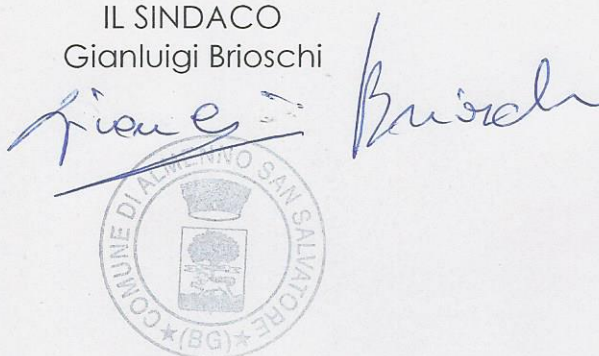 IL SINDACO
Gianluigi Brioschi
Gianluigi Brioschi
COMUNE DI ALMENNO SAN SALVATORE
★(BG)★